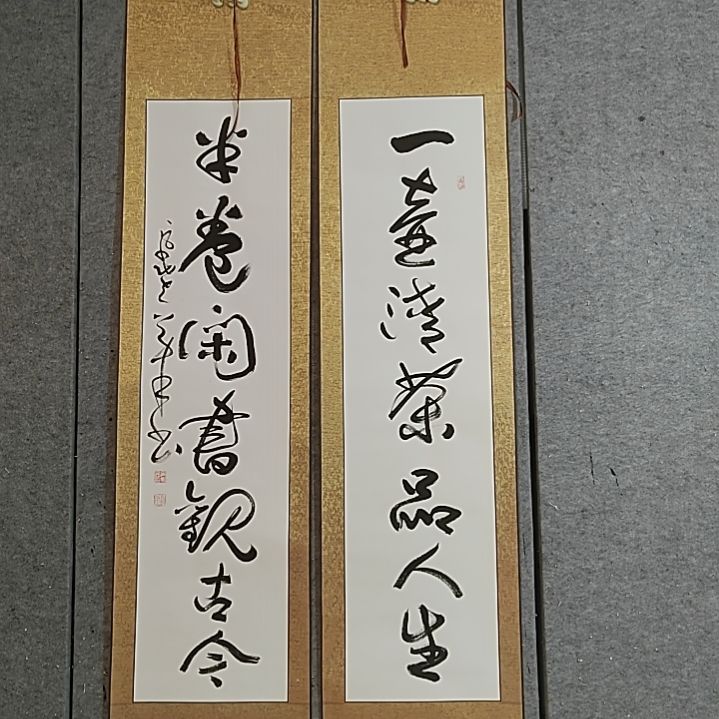 一壶清茶品人生
半卷闲书观古今